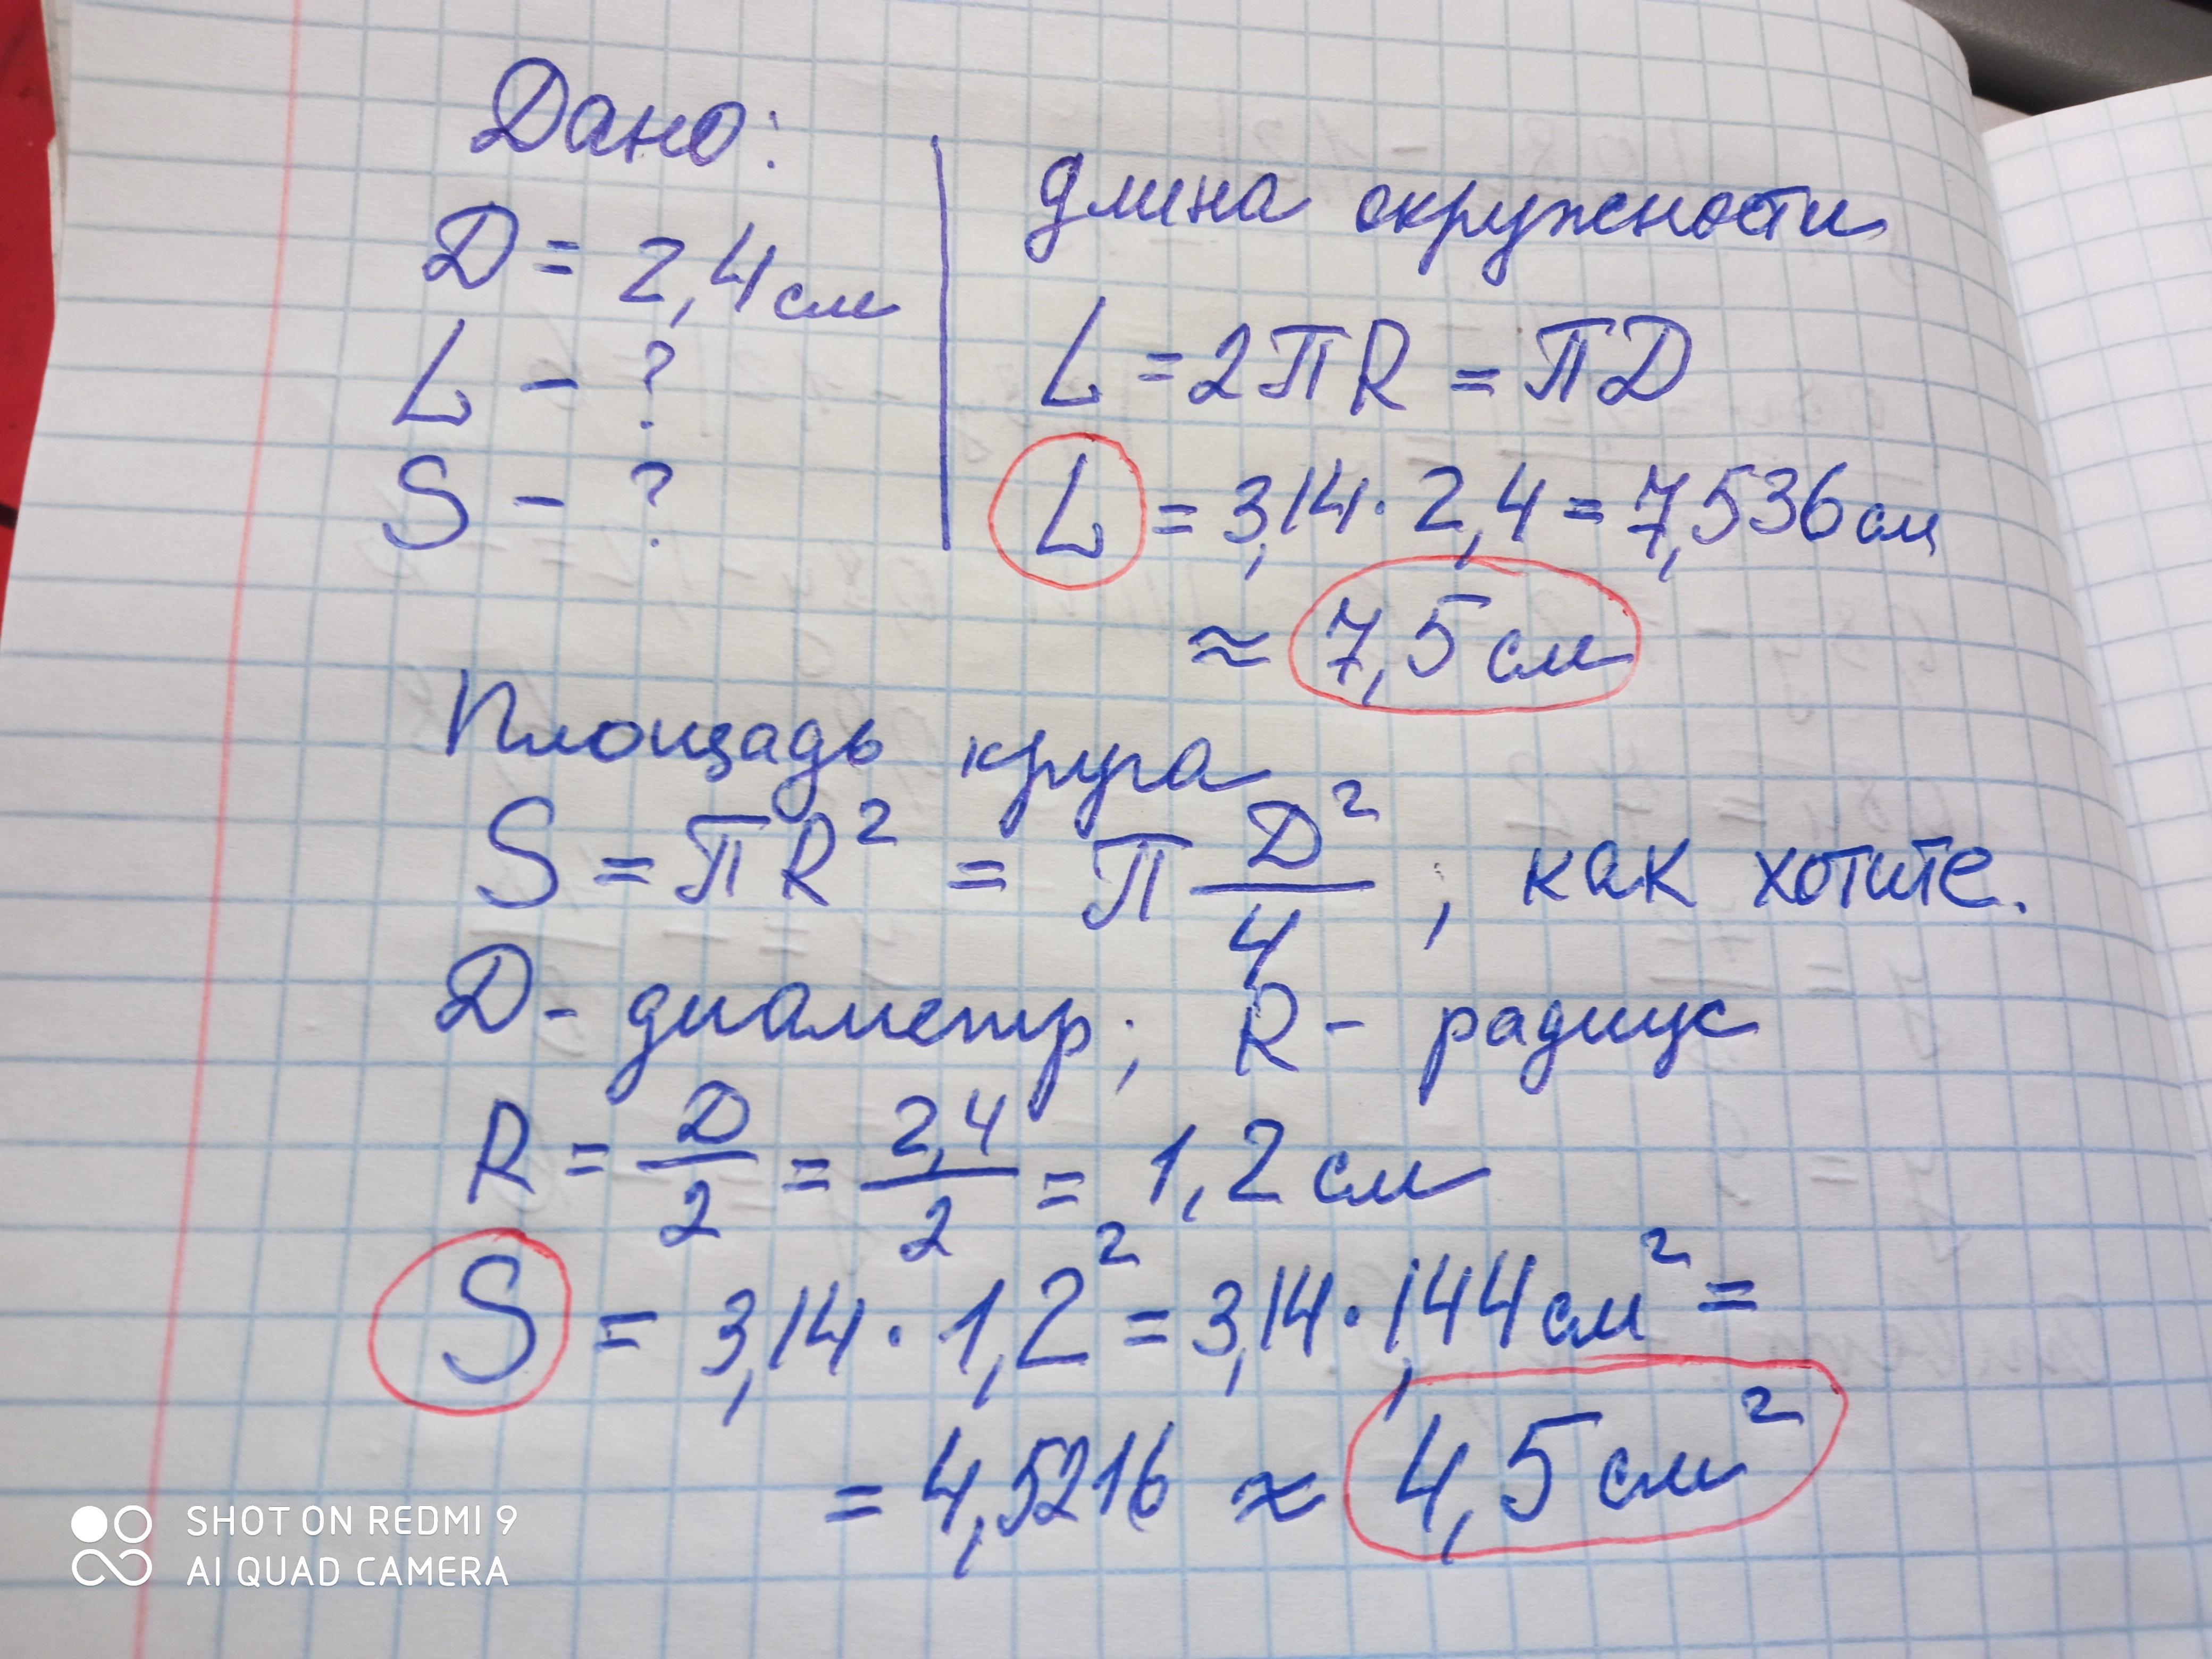 Дано:
D = 2,4 см
L - ?
S - ?
длина окружности
L = 2πR = πD
L = 3,14 · 2,4 = 7,536 см
≈ 7,5 см
Площадь круга
S = πR² = π D²/4 ; как хотите.
D - диаметр; R - радиус
R = D/2 = 2,4/2 = 1,2 см
S = 3,14 · 1,2² = 3,14 · 1,44 см² =
= 4,5216 ≈ 4,5 см²
SHOT ON REDMI 9
AI QUAD CAMERA